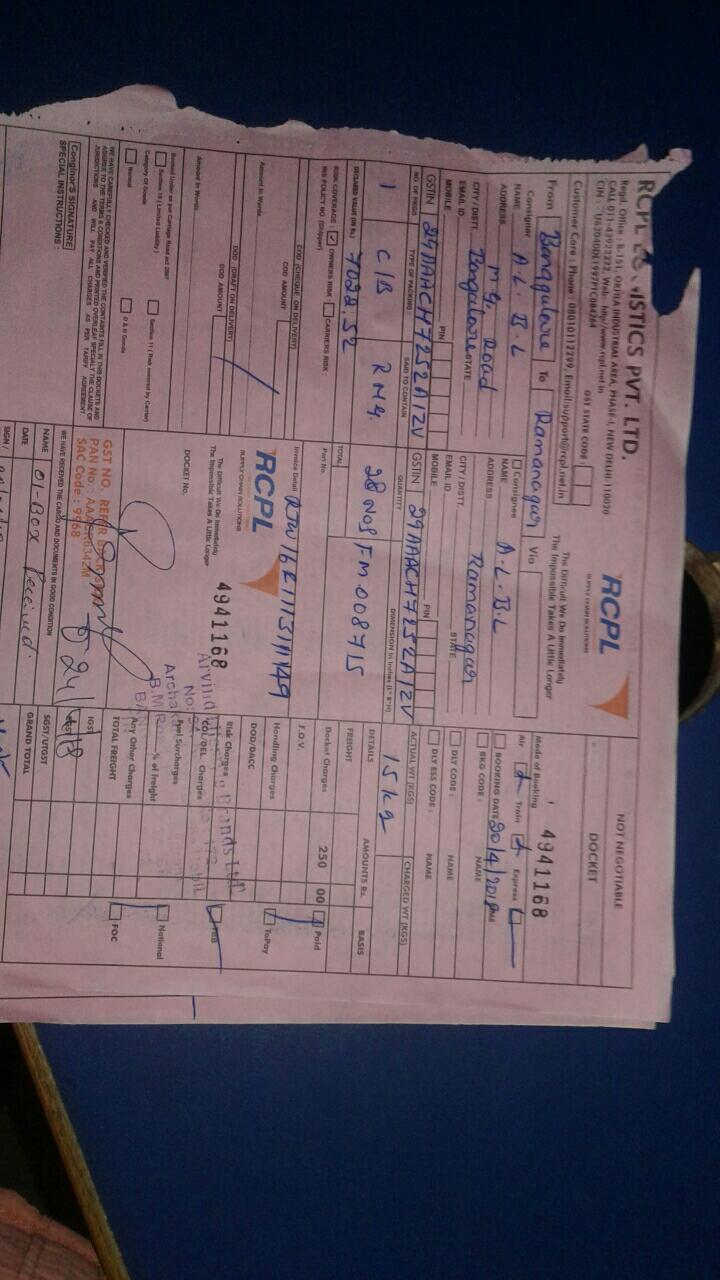 ISTICS PVT. LTD.
Regd. Office : B-151, OKHLA INDUSTRIAL AREA, PHASE-I, NEW DELHI-110020
CALL 011-43921222, Web: http//www.rcpl.net.in
Customer Care : Phone : 08010112299, Email:support@rcpl.net.in
GST STATE CODE :
RCPL
SUPPLY CHAIN SOLUTIONS
The Difficult We Do Immediately
The Impossible Takes A Little Longer
NOT NEGOTIABLE
DOCKET
4941168
From Bangalore To Ramanagar Via
Mode of Booking
Air Train Express
Consigner
NAME A.L.B.L
ADDRESS M.G. Road
CITY/ DISTT. Bangalore STATE
EMAIL ID
PIN
MOBILE
GSTIN 29AAACH7252A1ZV
Consignee
NAME A.L.B.L
ADDRESS
CITY / DISTT. Ramanagar STATE
EMAIL ID
PIN
MOBILE
GSTIN 29AAACH7252A1ZV
BOOKING DATE 20/4/2018
BKG CODE : NAME
DLY CODE : NAME
DLY ESS CODE : NAME
NO. OF PKGS TYPE OF PACKING SAID TO CONTAIN QUANTITY DIMENSION in Inches (L* B*H) ACTUAL WT (KGS) CHARGED WT (KGS)
1 C/B RMG. 28 NOS FM008715 15kg
DECLARED VALUE (IN Rs.) 7022.52
TOTAL
DETAILS AMOUNTS Rs. BASIS
FREIGHT
RISK COVERAGE : OWNERS RISK CARRIERS RISK :
RIS POLICY NO. (Shipper)
Part No.
Docket Charges 250 00 Paid
COD (CHEQUE ON DELIVERY)
COD AMOUNT
Invoice Detail
F.O.V.
Handling Charges ToPay
Amount in Words
DOD (DRAFT ON DELIVERY)
DOD AMOUNT
RCPL
SUPPLY CHAIN SOLUTIONS
The Difficult We Do Immediately
The Impossible Takes A Little Longer
4941168
DOCKET No.
DOD/DACC
Risk Charges
Col/DEL Charges
Fuel Surcharges
% of Freight National
Any Other Charges
TOTAL FREIGHT FOC
Amount in Words
Booked Under as per Carriage Road act 2007
Section 10 ( Limited Liability )
Section 11 ( Risk covered by Carrier)
Category Of Goods
Normal
D & H Goods
WE HAVE CARFULLY CHECKED AND VERIFIED THE CONTANTS FILL IN THIS DOCKETS AND AGREE TO THE TERMS & CONDITIONS AND PRINTED OVERLEAF SPECIALLY THE CLAUSE OF JURISDICTIONS AND WILL PAY ALL CHARGES AS PER TARIFF AGREEMENT
GST NO. REFER BACK
PAN No. :
SAC Code : 9968
IGST
SGST/UTGST
GRAND TOTAL
Conginor's SIGNATURE
SPECIAL INSTRUCTIONS :
WE HAVE RECEIVED THE CARGO AND DOCUMENTS IN GOOD CONDITION
NAME 01-Box Received
DATE
SIGN /